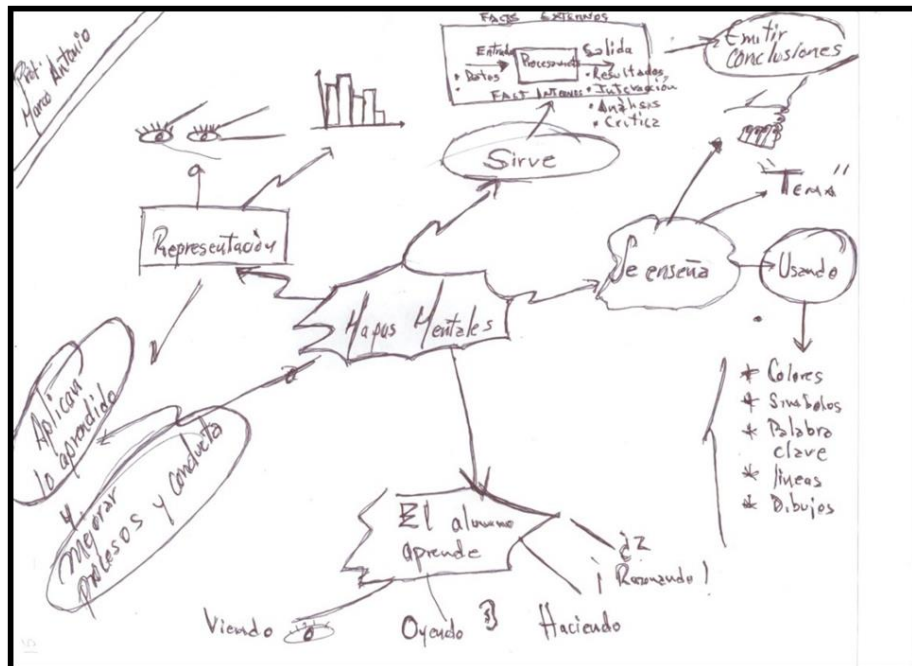 Prof.
Marco Antonio
FACTS EXTERNOS
Entrada
• Datos
Procesamiento
Salida
• Resultados
FACT INTERNOS
• Interacción
• Análisis
• Crítica
Emitir
Conclusiones
Sirve
"Tema"
Representación
Se enseña
Usando
Mapas Mentales
* Colores
* Simbolos
* Palabra
clave
* lineas
* Dibujos
Aplican
lo aprendido
y
Mejorar
procesos y conducta
El alumno
aprende
¿?
¡Razonando!
Viendo
Oyendo
Haciendo
15